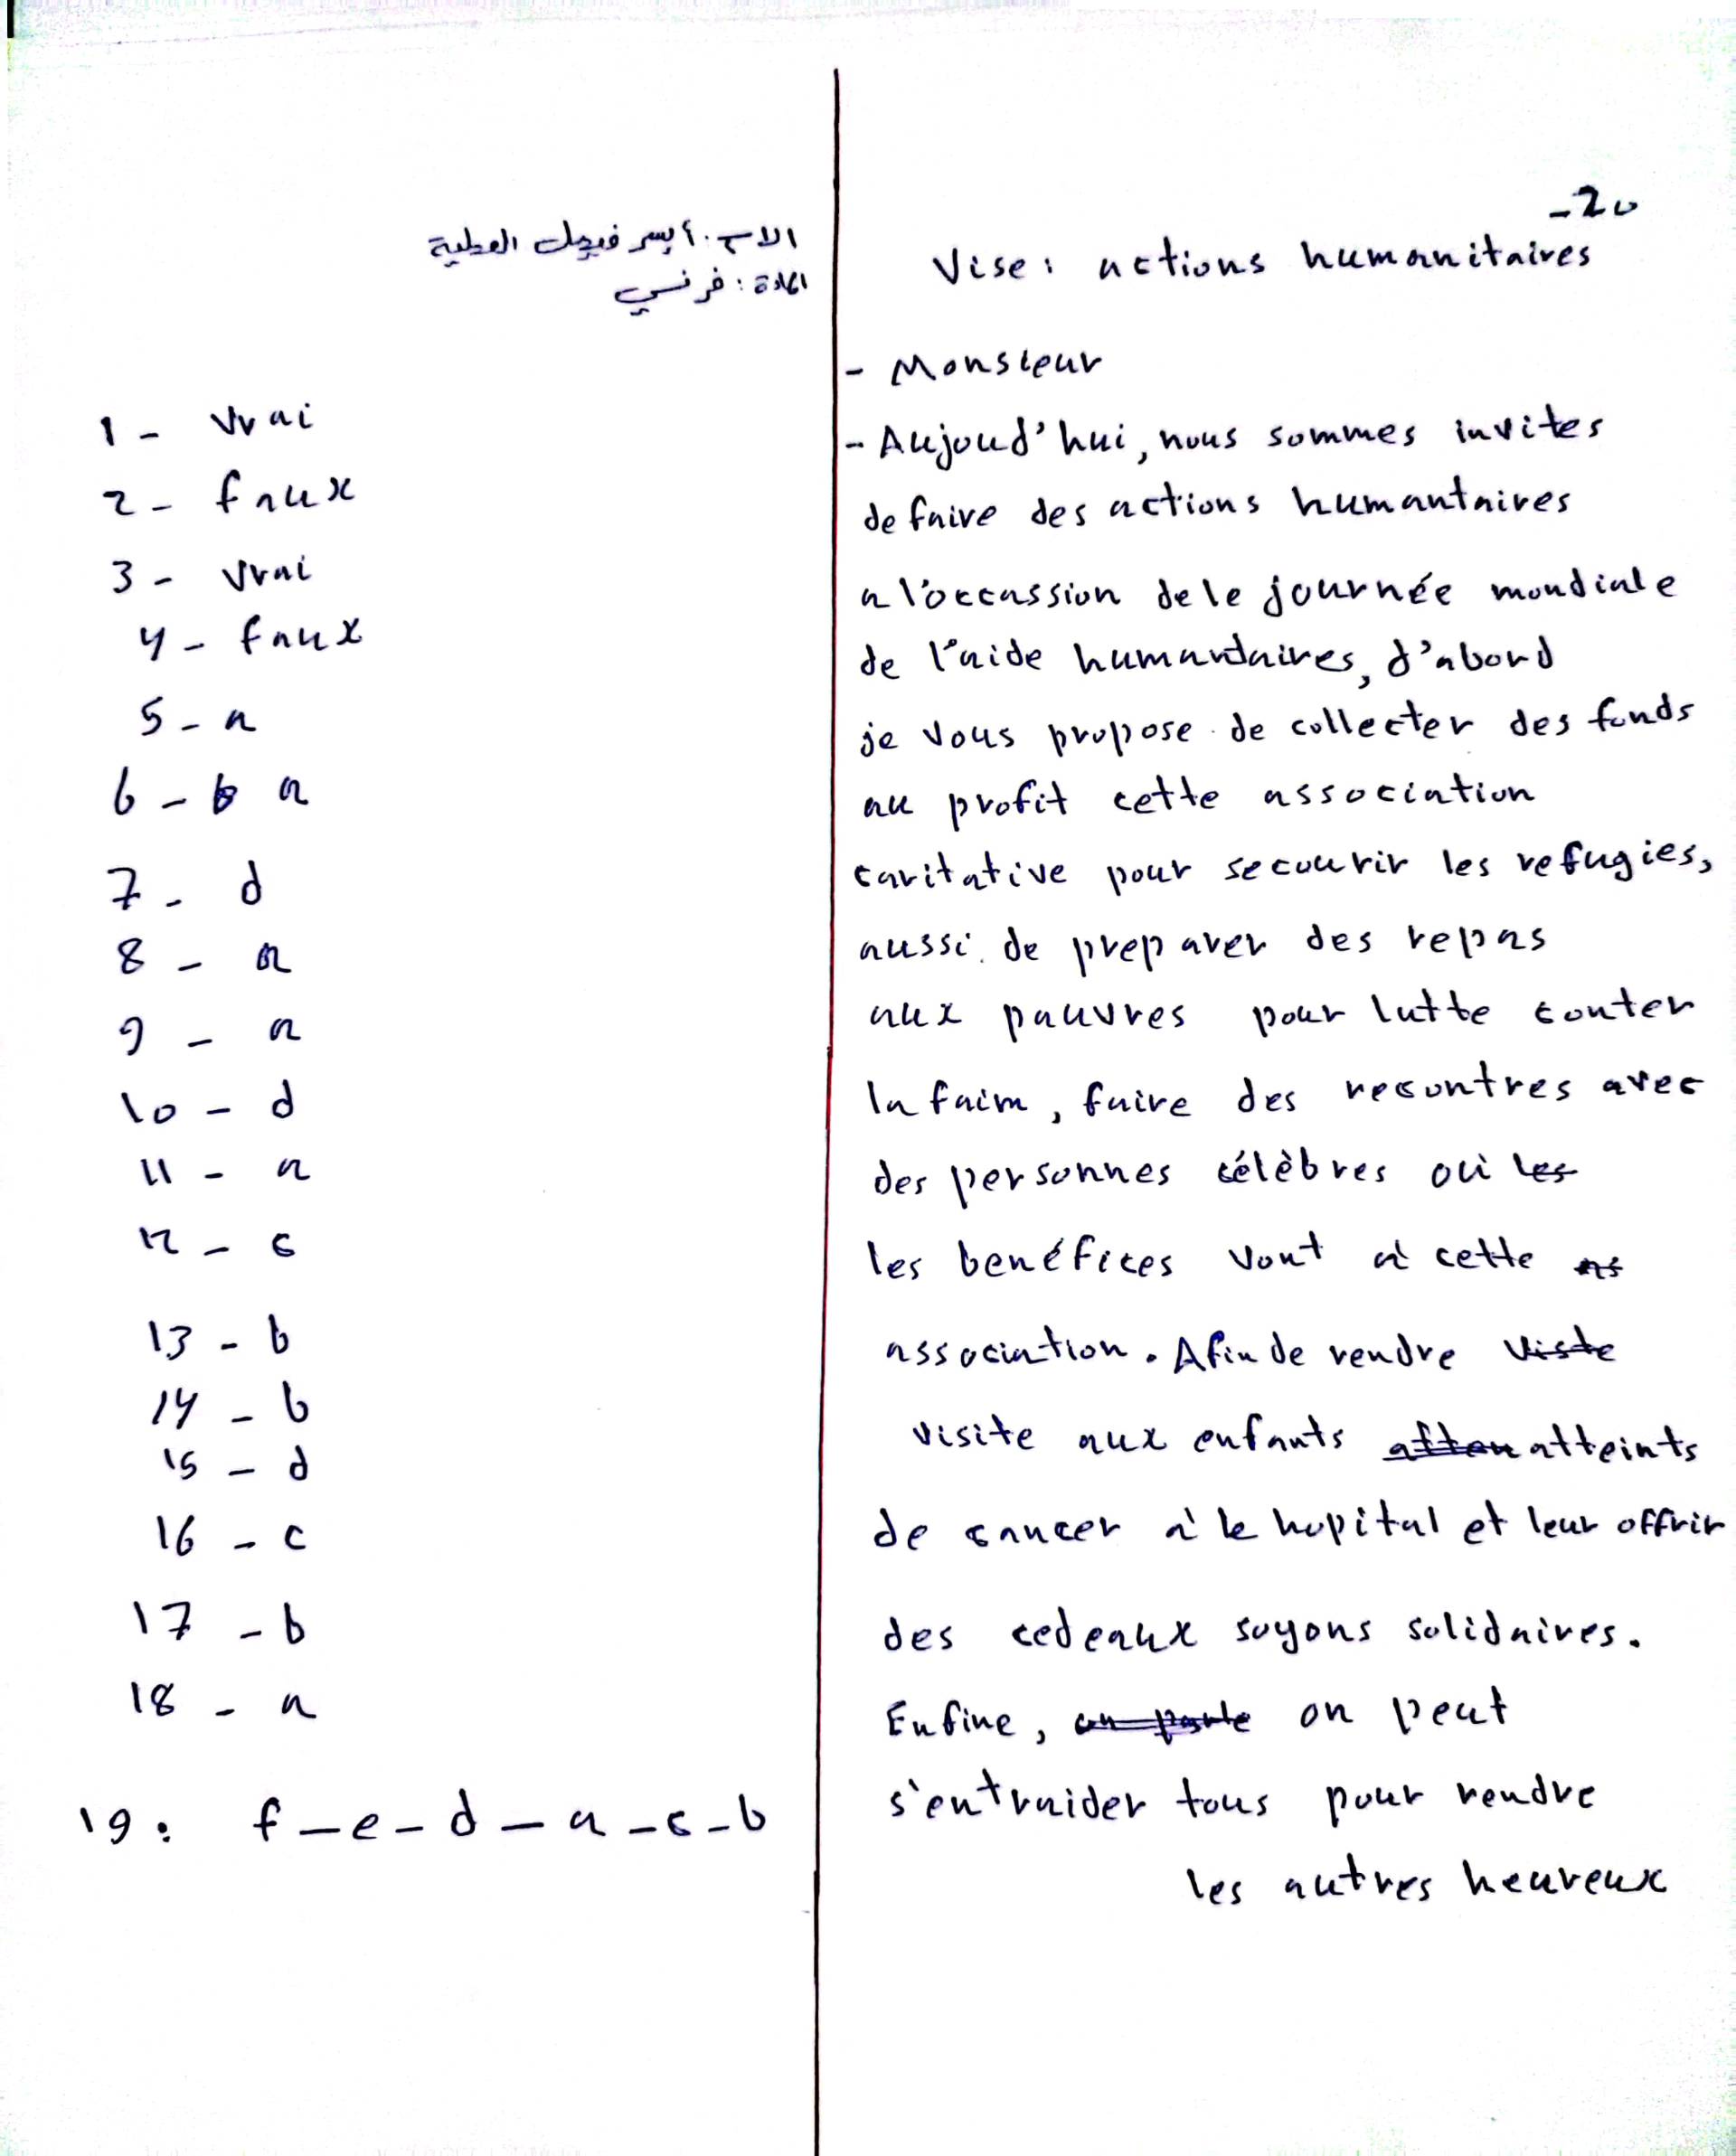 الاسم: أيسر فيصل العطية
المادة: فرنسي
1 - Vrai
2 - faux
3 - Vrai
4 - faux
5 - a
6 - b a
7 - d
8 - a
9 - a
10 - d
11 - a
12 - c
13 - b
14 - b
15 - d
16 - c
17 - b
18 - a
19: f - e - d - a - c - b
-20
Vise: actions humanitaires
- Monsieur
- Aujoud'hui, nous sommes invites
de faire des actions humantaires
a l'occassion de le journée mondiale
de l'aide humantaires, d'abord
je vous propose de collecter des fonds
au profit cette association
caritative pour secourir les refugies,
aussi de preparer des repas
aux pauvres pour lutte conter
la faim, faire des recontres avec
des personnes célèbres où les
les benéfices vont à cette as
association. Afin de rendre viste
visite aux enfants atteints
de cancer à le hopital et leur offrir
des cedeaux soyons solidaires.
Enfine, on parle on peut
s'entraider tous pour rendre
les autres heureux